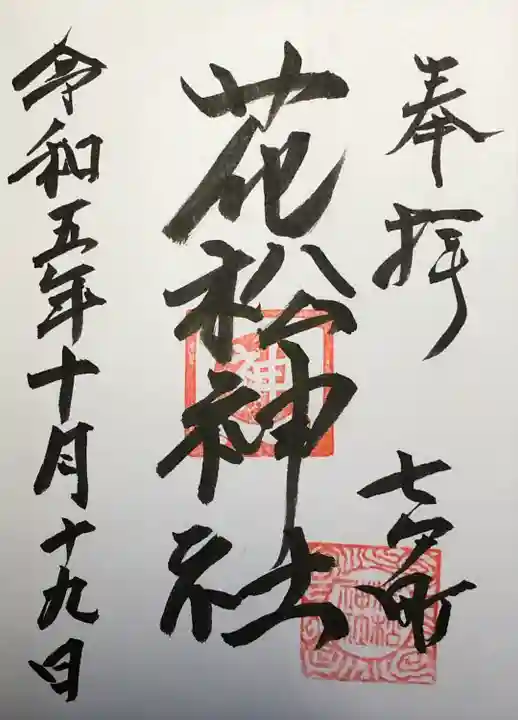 奉拝
七夕町
花松神社
令和五年十月十九日